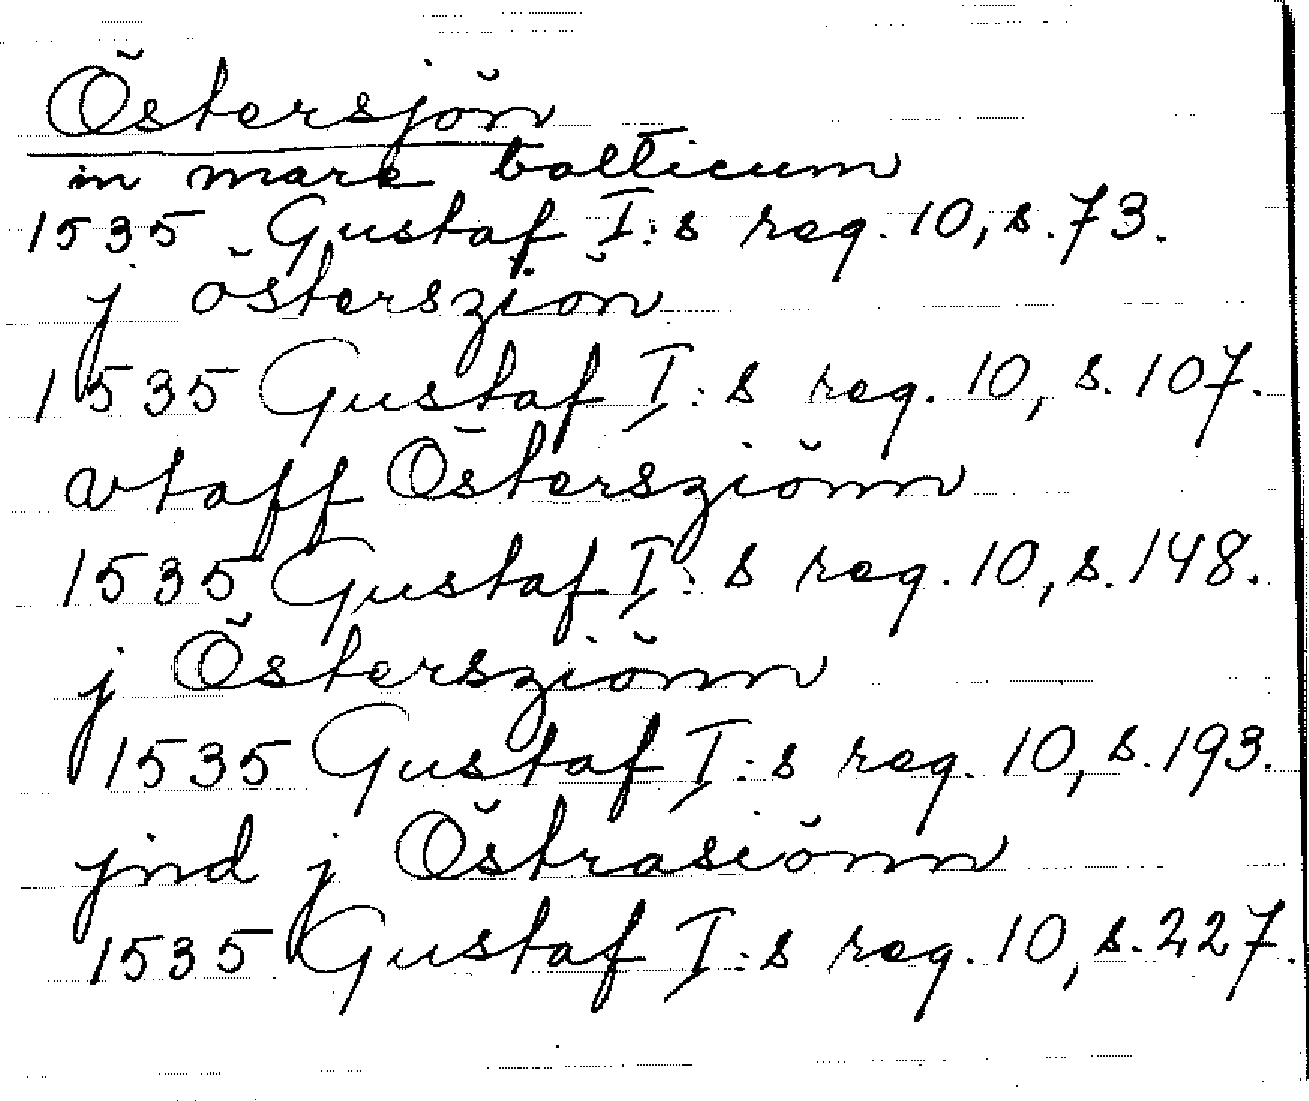 Östersjön
in mare balticum
1535 Gustaf I:s reg. 10, s. 73.
j östersziön
1535 Gustaf I:s reg. 10, s. 107.
vtaff Östersziönn
1535 Gustaf I:s reg. 10, s. 148.
j Östersziönn
1535 Gustaf I:s reg. 10, s. 193.
jnd j Östrasiönn
1535 Gustaf I:s reg. 10, s. 227.